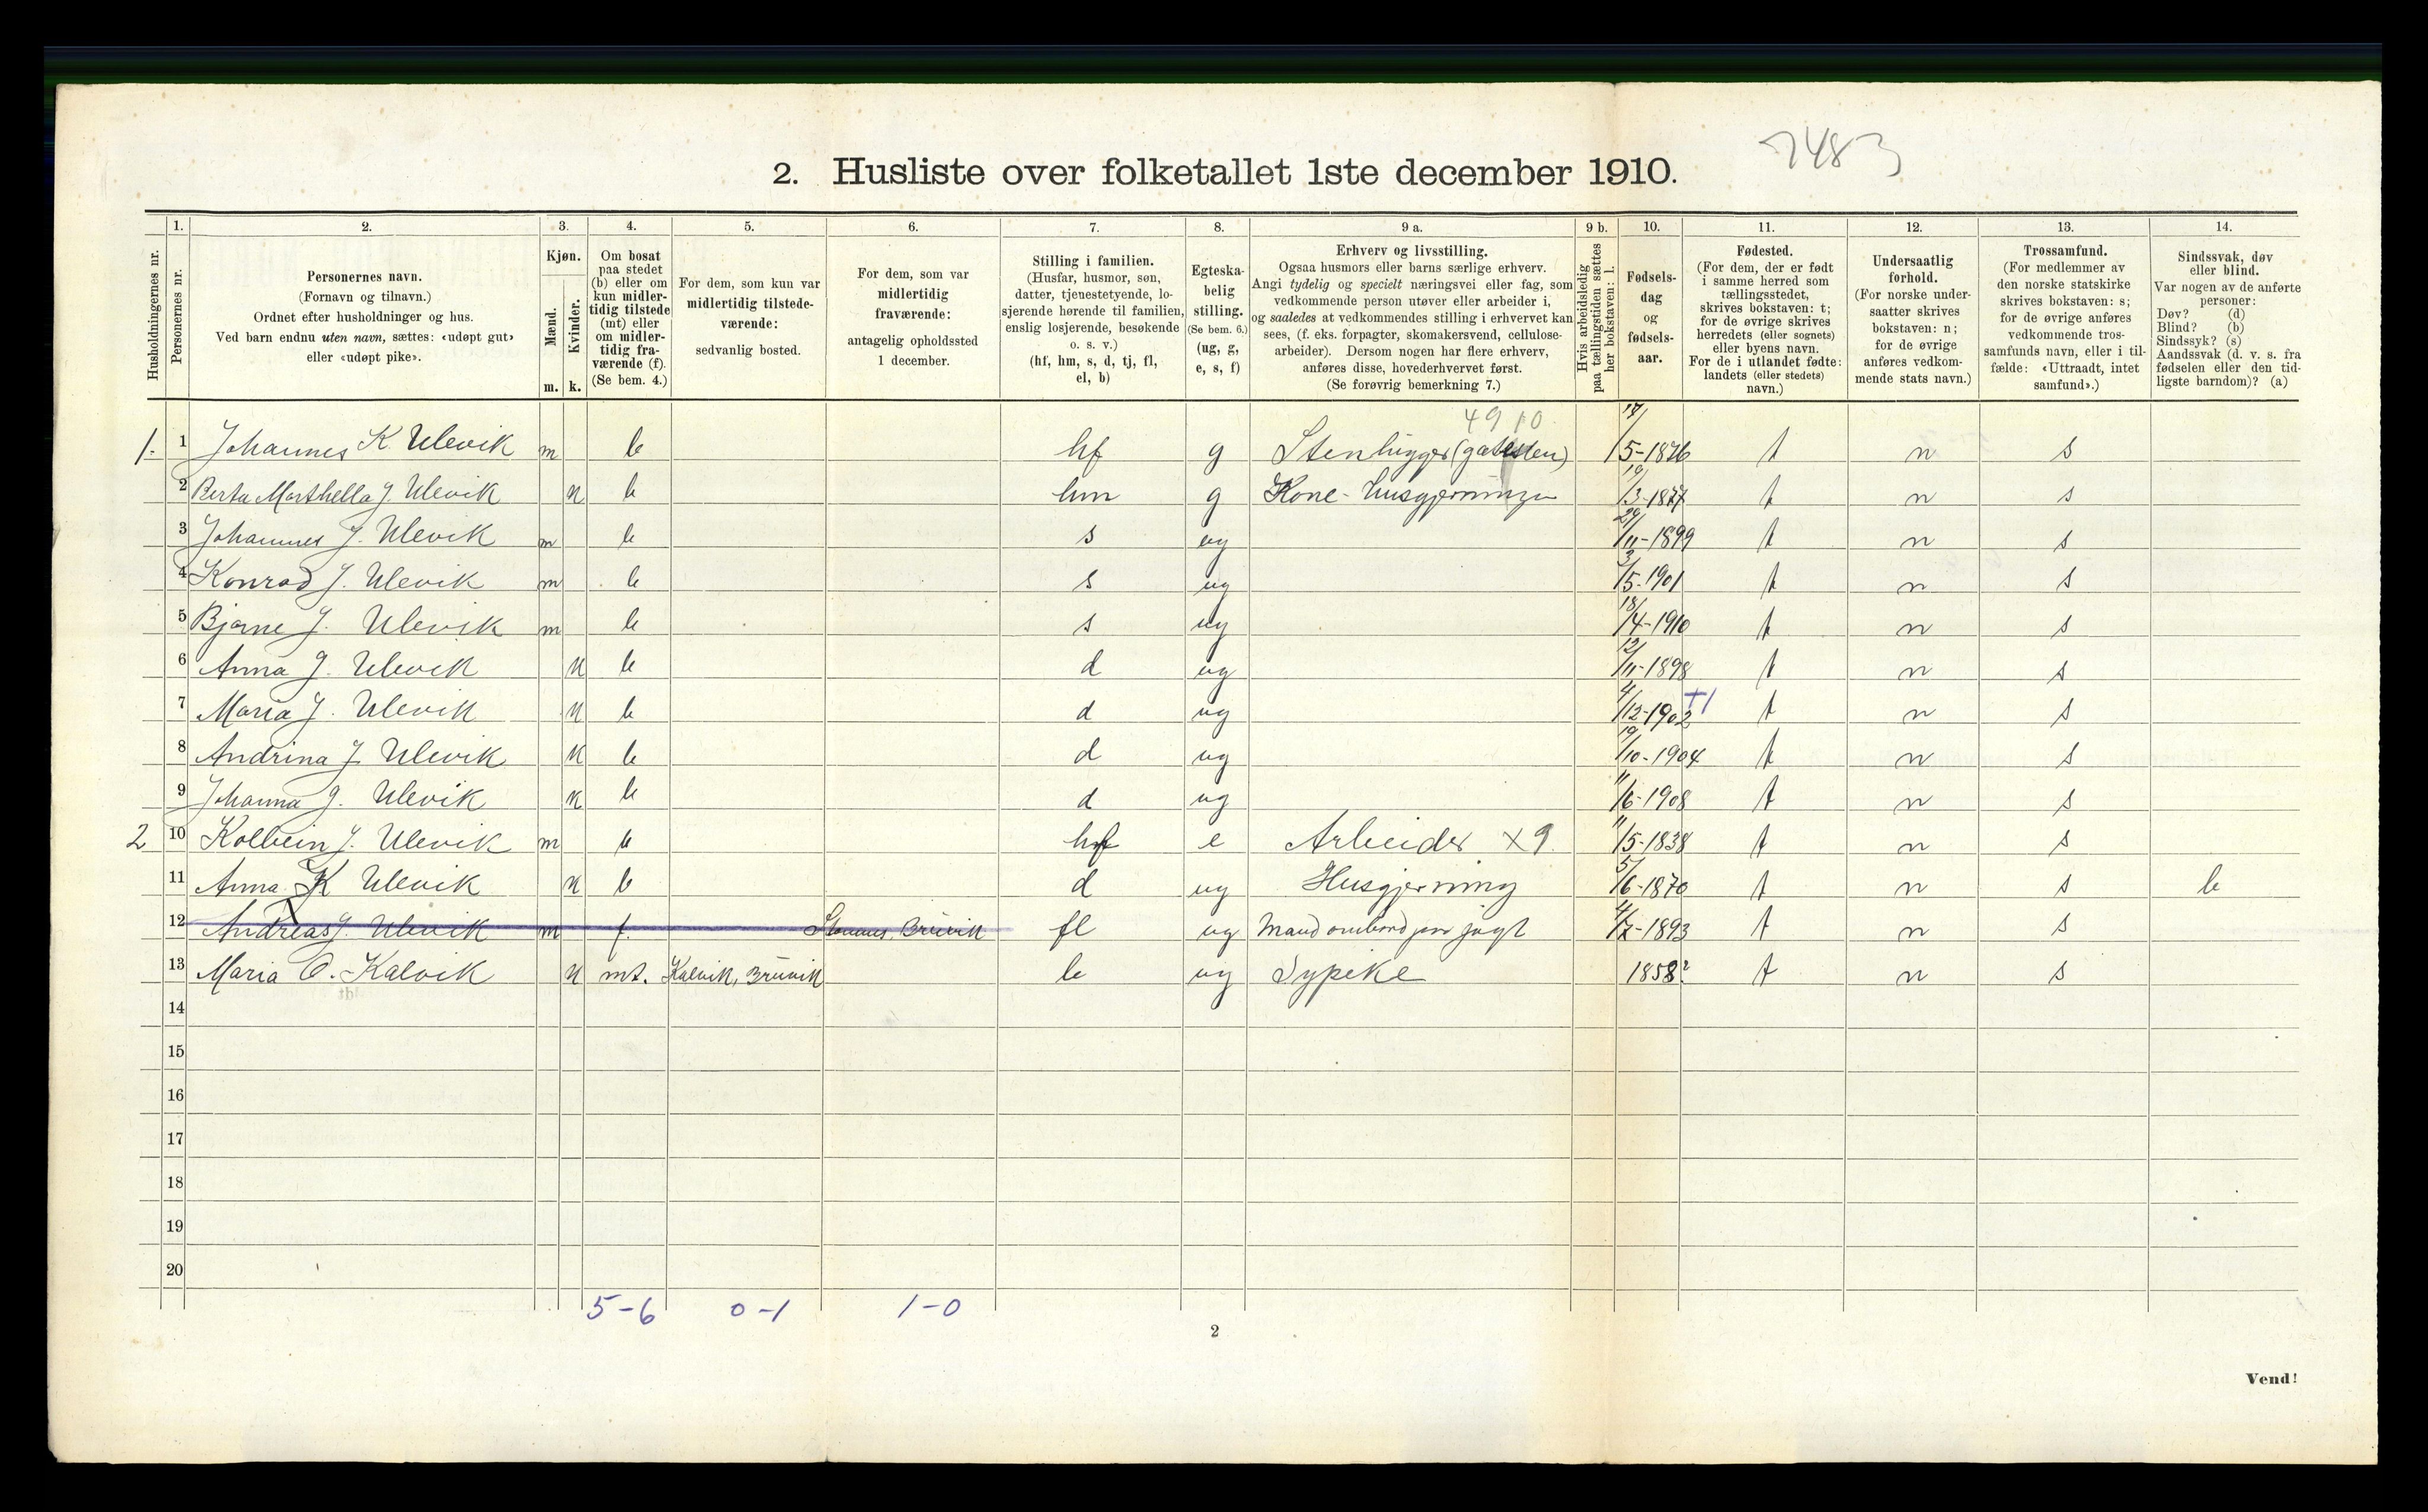 2. Husliste over folketallet 1ste december 1910. 7483
1. 2. 3. 4. 5. 6. 7. 8. 9 a. 9 b. 10. 11. 12. 13. 14.
Husholdningernes nr.
Personernes nr.
Personernes navn.
(Fornavn og tilnavn.)
Ordnet efter husholdninger og hus.
Ved barn endnu uten navn, sættes: «udøpt gut»
eller «udøpt pike».
Kjøn.
Mænd.
Kvinder.
m. k.
Om bosat
paa stedet
(b) eller om
kun midler-
tidig tilstede
(mt) eller
om midler-
tidig fra-
værende (f).
(Se bem. 4.)
For dem, som kun var
midlertidig tilstede-
værende:
sedvanlig bosted.
For dem, som var
midlertidig
fraværende:
antagelig opholdssted
1 december.
Stilling i familien.
(Husfar, husmor, søn,
datter, tjenestetyende, lo-
sjerende hørende til familien,
enslig losjerende, besøkende
o. s. v.)
(hf, hm, s, d, tj, fl,
el, b)
Egteska-
belig
stilling.
(Se bem. 6.)
(ug, g,
e, s, f)
Erhverv og livsstilling.
Ogsaa husmors eller barns særlige erhverv.
Angi tydelig og specielt næringsvei eller fag, som
vedkommende person utøver eller arbeider i,
og saaledes at vedkommendes stilling i erhvervet kan
sees, (f. eks. forpagter, skomakersvend, cellulose-
arbeider). Dersom nogen har flere erhverv,
anføres disse, hovederhvervet først.
(Se forøvrig bemerkning 7.)
Hvis arbeidsledig
paa tællingstiden sættes
her bokstaven: l.
Fødsels-
dag
og
fødsels-
aar.
Fødested.
(For dem, der er født
i samme herred som
tællingsstedet,
skrives bokstaven: t;
for de øvrige skrives
herredets (eller sognets)
eller byens navn.
For de i utlandet fødte:
landets (eller stedets)
navn.)
Undersaatlig
forhold.
(For norske under-
saatter skrives
bokstaven: n;
for de øvrige
anføres vedkom-
mende stats navn.)
Trossamfund.
(For medlemmer av
den norske statskirke
skrives bokstaven: s;
for de øvrige anføres
vedkommende tros-
samfunds navn, eller i til-
fælde: «Uttraadt, intet
samfund».)
Sindssvak, døv
eller blind.
Var nogen av de anførte
personer:
Døv? (d)
Blind? (b)
Sindssyk? (s)
Aandssvak (d. v. s. fra
fødselen eller den tid-
ligste barndom)? (a)
4910
1. 1 Johannes K Ulevik m b hf g Stenhugger (gatesten) 17/5-1876 t n s
2 Berta Marthella J. Ulevik k b hm g Kone-husgjerninger 19/3-1877 t n s
3 Johannes J. Ulevik m b s ug 29/11-1899 t n s
4 Konrad J. Ulevik m b s ug 3/5-1901 t n s
5 Bjarne J. Ulevik m b s ug 18/4-1910 t n s
6 Anna J. Ulevik k b d ug 12/11-1898 t n s
7 Maria J. Ulevik k b d ug 4/12-1902 +1 t n s
8 Andrina J. Ulevik k b d ug 19/10-1904 t n s
9 Johanna J. Ulevik k b d ug 11/6-1908 t n s
2 10 Kolbein J. Ulevik m b hf e Arbeider X9 11/5-1838 t n s
11 Anna K Ulevik k b d ug Husgjerning 5/6-1870 t n s b
12 Andreas J. Ulevik m f. Stamnes, Bruvik fl ug Mand ombord paa jagt 4/7-1893 t n s
13 Maria O. Kalvik k mt. Kalvik, Bruvik b ug Sypike 1858? t n s
14
15
16
17
18
19
20
5-6 0-1 1-0
2
Vend!